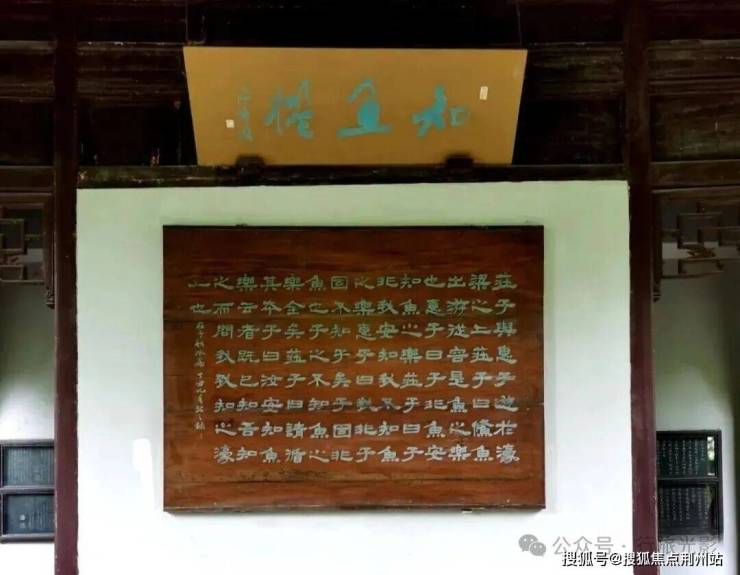 知魚檻
莊子與惠子遊於濠
梁之上莊子曰儵魚
出游從容是魚之樂
也惠子曰子非魚安
知魚之樂莊子曰子
非我安知我不知魚
之樂惠子曰我非子
固不知子矣子固非
魚也子之不知魚之
樂全矣莊子曰請循
其本子曰汝安知魚
樂云者既已知吾知
之而問我我知之濠
上也
莊子秋水篇
公众号·行旅光影
搜狐号@搜狐焦点荆州站